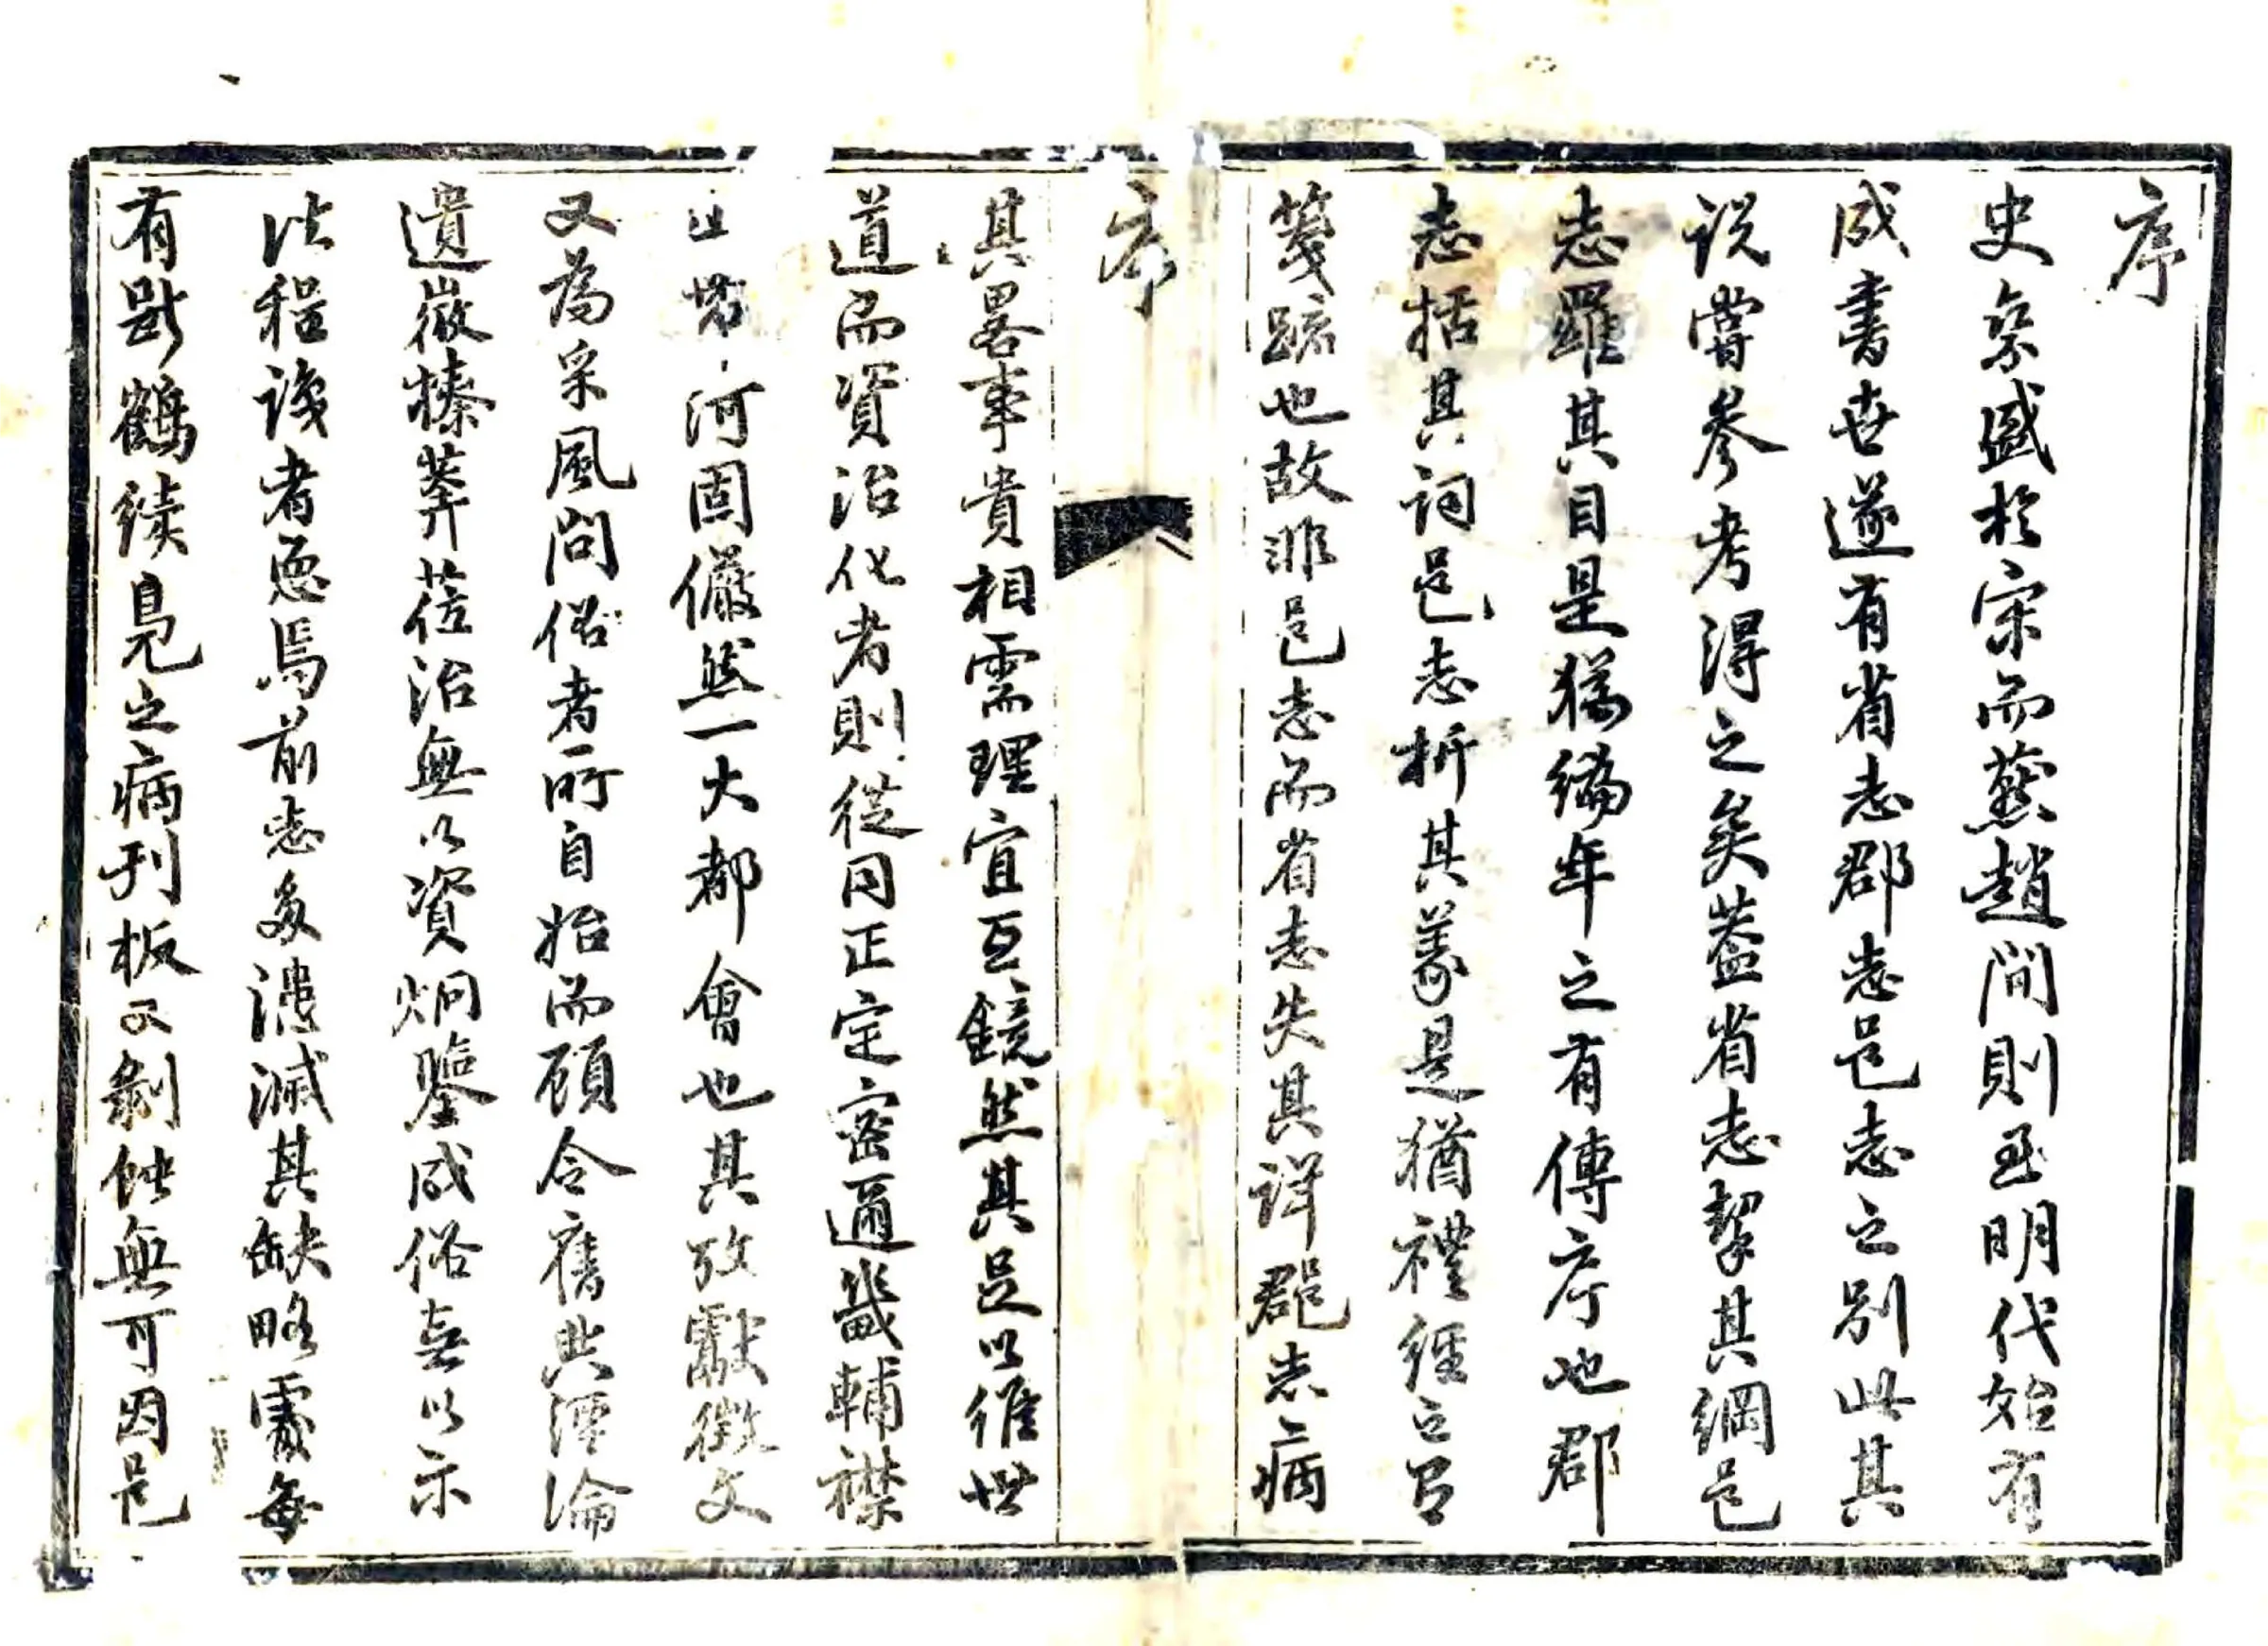 序
史乘盛於宋而燕趙間則至明代始有
成書世遂有省志郡志邑志之別此其
説嘗參考得之矣蓋省志挈其綱邑
志羅其目是猶編年之有傳序也郡
志括其詞邑志析其義是猶禮經之有
箋疏也故非邑志而省志失其詳郡志病
序
其畧事貴相需理宜互鏡然其足以維世
道而資治化者則從同正定密邇畿輔襟
山帶河固儼然一大都會也其攷獻徵文
又為采風問俗者所自始而顧令舊典湮淪
遺徽榛莽莅治無以資炯鑒成俗無以示
法程識者恧焉前志多漶滅其缺略處每
有斷鶴續鳧之病刊板又剝蝕無可因邑